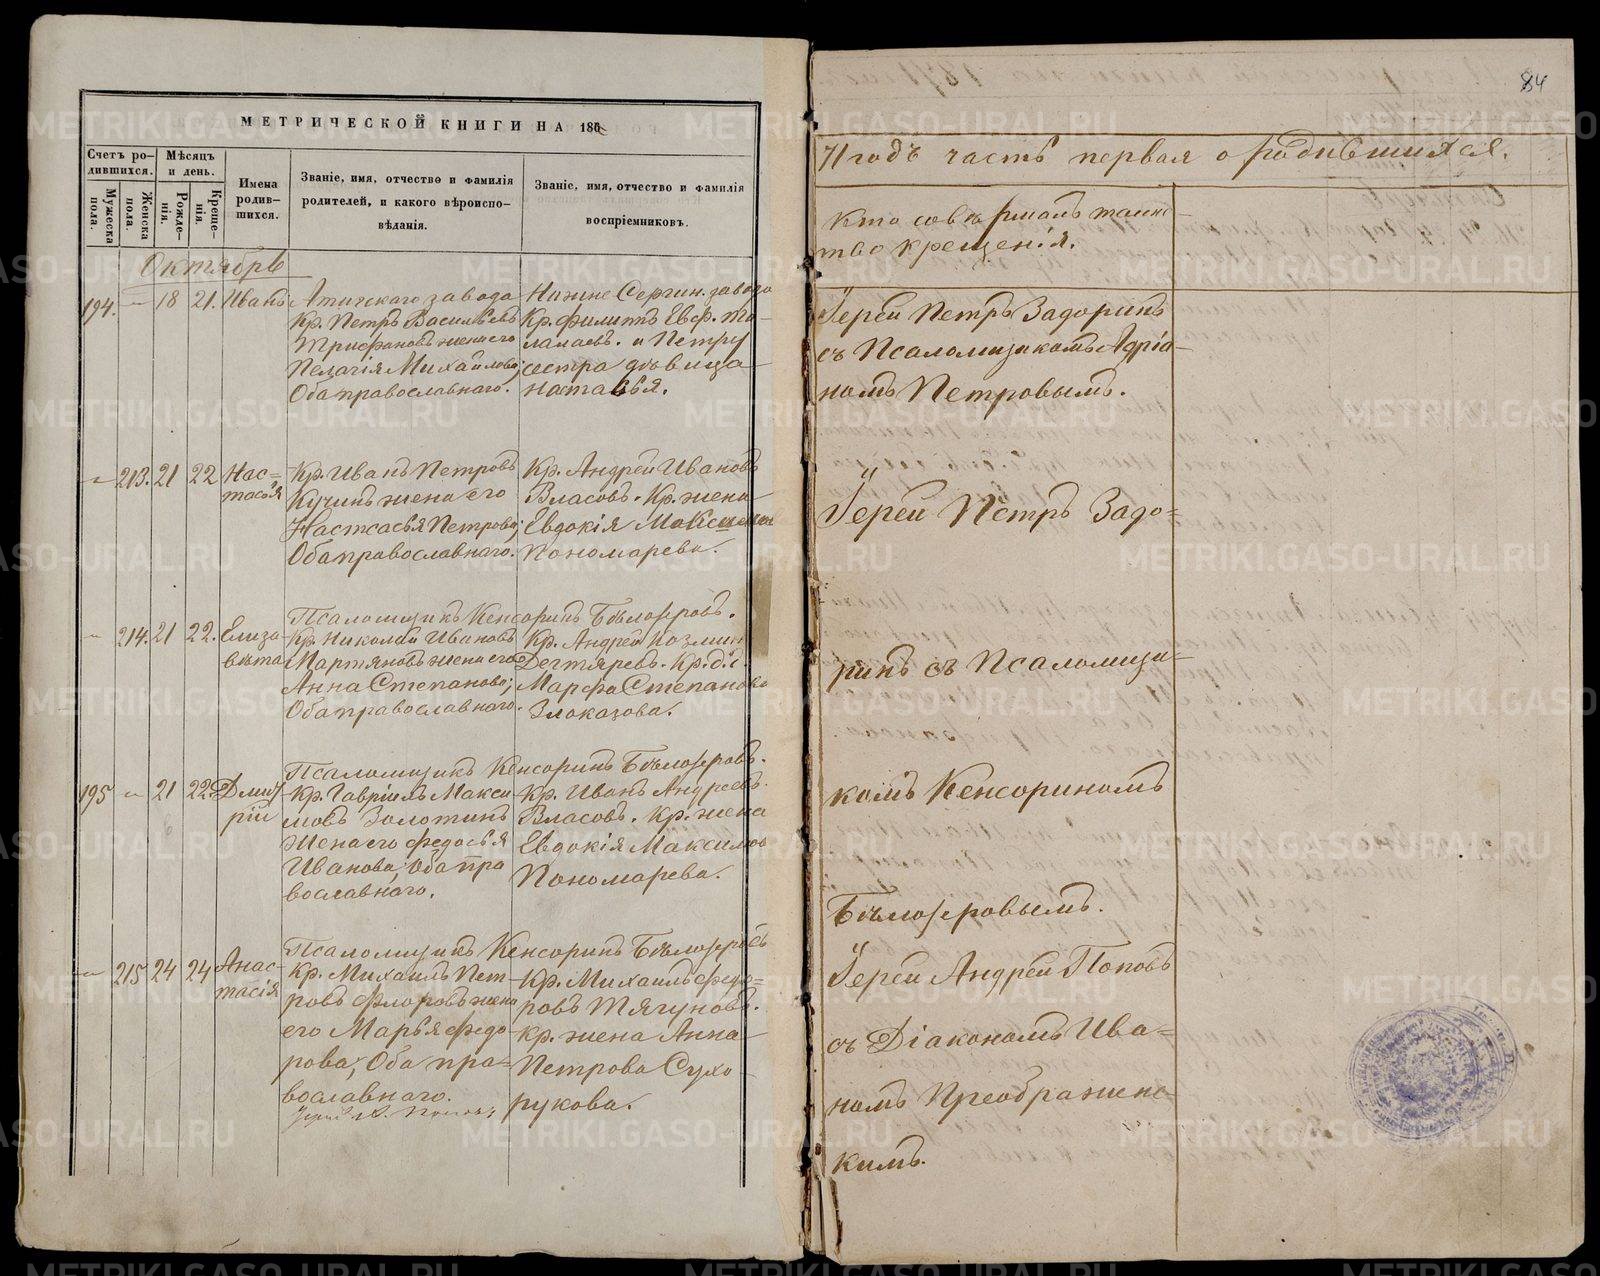 84
МЕТРИЧЕСКОЙ КНИГИ НА 186
71 годъ часть первая о родившихся.
Счетъ ро-
дившихся.
Мужеска
пола.
Женска
пола.
Мѣсяцъ
и день.
Рожде-
нія.
Креще-
нія.
Имена
родив-
шихся.
Званіе, имя, отчество и фамилія
родителей, и какого вѣроиспо-
вѣданія.
Званіе, имя, отчество и фамилія
воспріемниковъ.
Кто совершалъ таин-
ство крещенія.
Октябрь
194. — 18 21. Иванъ
Атигскаго завода
Кр. Петръ Васильевъ
Трифановъ жена его
Пелагія Михайлова;
Оба православнаго.
Нижне Сергин. завода
Кр. Филиппъ Евф. Та-
лалаевъ. и Петру
сестра дѣвица
Настасья.
Іерей Петръ Задоринъ
съ Псаломщикомъ Адріа-
номъ Петровымъ.
— 213. 21 22 Нас-
тасья
Кр. Иванъ Петровъ
Кучинъ жена его
Настасья Петрова;
Оба православнаго.
Кр. Андрей Ивановъ
Власовъ. Кр. жена
Евдокія Максимова
Пономарева.
Іерей Петръ Задо-
Псаломщикъ Кенсоринъ Бѣлозеровъ.
— 214. 21 22. Елиза-
вета
Кр. Николай Ивановъ
Мартяновъ жена его
Анна Степанова;
Оба православнаго.
Кр. Андрей Козмин
Дегтяревъ. Кр. д.
Марфа Степанова
Злоказова.
ринъ съ Псаломщи-
Псаломщикъ Кенсоринъ Бѣлозеровъ.
195 — 21 22 Дмит
рій
Кр. Гавріилъ Макси-
мовъ Золотинъ
Жена его Федосья
Иванова; Оба пра
вославнаго.
Кр. Иванъ Андреевъ.
Власовъ. Кр. жена
Евдокія Максимов
Пономарева.
комъ Кенсориномъ
Бѣлозеровымъ.
Псаломщикъ Кенсоринъ Бѣлозеровъ
— 215 24 24 Анас-
тасія
Кр. Михаилъ Пет-
ровъ Флоровъ жена
его Марья Федо
рова; Оба пра-
вославнаго.
Кр. Михаилъ Федо-
ровъ Тягуновъ.
Кр. жена Анна
Петрова Сухо
рукова.
Іерей Андрей Поповъ
съ Діакономъ Ива-
номъ Преображенс-
кимъ.
METRIKI.GASO-URAL.RU